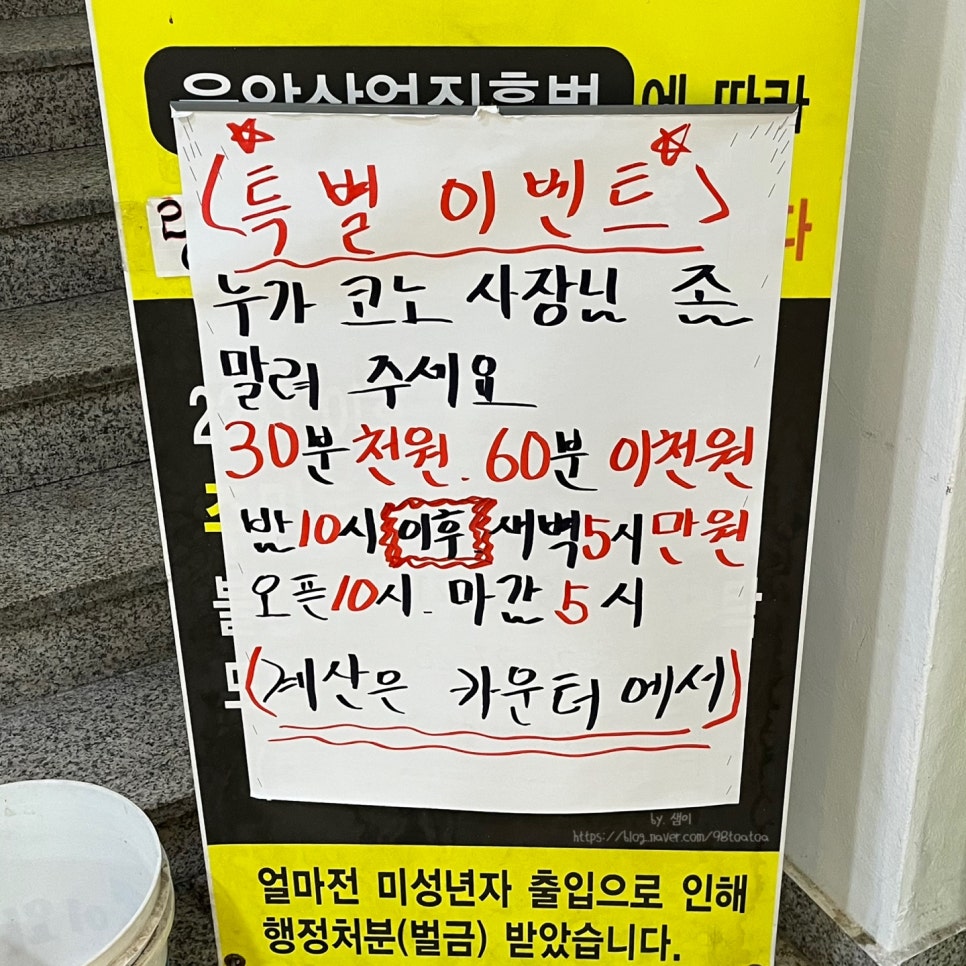 음악산업진흥법에 따라
(특별 이벤트)
누가 코노 사장님 좀
말려 주세요
30분 천원. 60분 이천원
밤10시 이후 새벽5시 만원
오픈10시. 마감5시
(계산은 카운터에서)
by. 샘이
https://blog.naver.com/98toatoa
얼마전 미성년자 출입으로 인해
행정처분(벌금) 받았습니다.